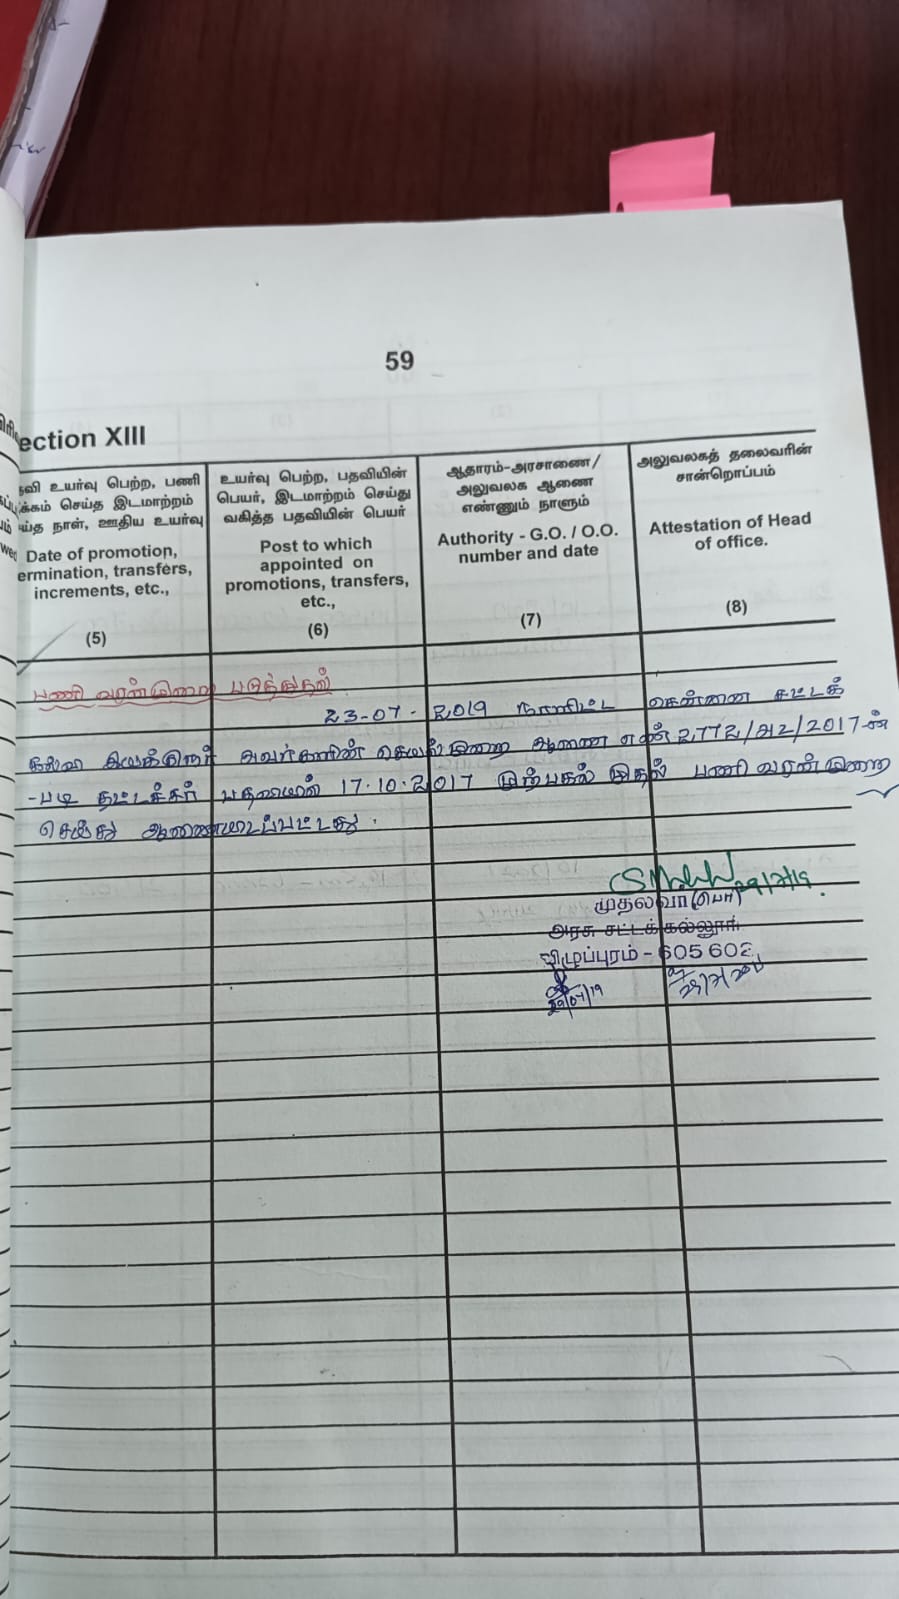 59
ection XIII
வி உயர்வு பெற்ற, பணி
க்கம் செய்த இடமாற்றம்
ய்த நாள், ஊதிய உயர்வு
Date of promotion,
ermination, transfers,
increments, etc.,
(5)
உயர்வு பெற்ற, பதவியின்
பெயர், இடமாற்றம் செய்து
வகித்த பதவியின் பெயர்
Post to which
appointed on
promotions, transfers,
etc.,
(6)
ஆதாரம்-அரசாணை/
அலுவலக ஆணை
எண்ணும் நாளும்
Authority - G.O. / O.O.
number and date
(7)
அலுவலகத் தலைவரின்
சான்றொப்பம்
Attestation of Head
of office.
(8)
பணி வரன்முறை படுத்துதல்
23-07-2019 நாளிட்ட சென்னை சட்டக்
கல்வி இயக்குநர் அவர்களின் செயல்முறை ஆணை எண் 2772/அ2/2017-ன்
-படி தட்டச்சர் பதவியில் 17.10.2017 முற்பகல் முதல் பணி வரன்முறை
செய்து ஆணையிடப்பட்டது.
29/7/19
முதல்வர்(பொ)
அரசு சட்டக் கல்லூரி
விழுப்புரம் - 605 602
29/07/19